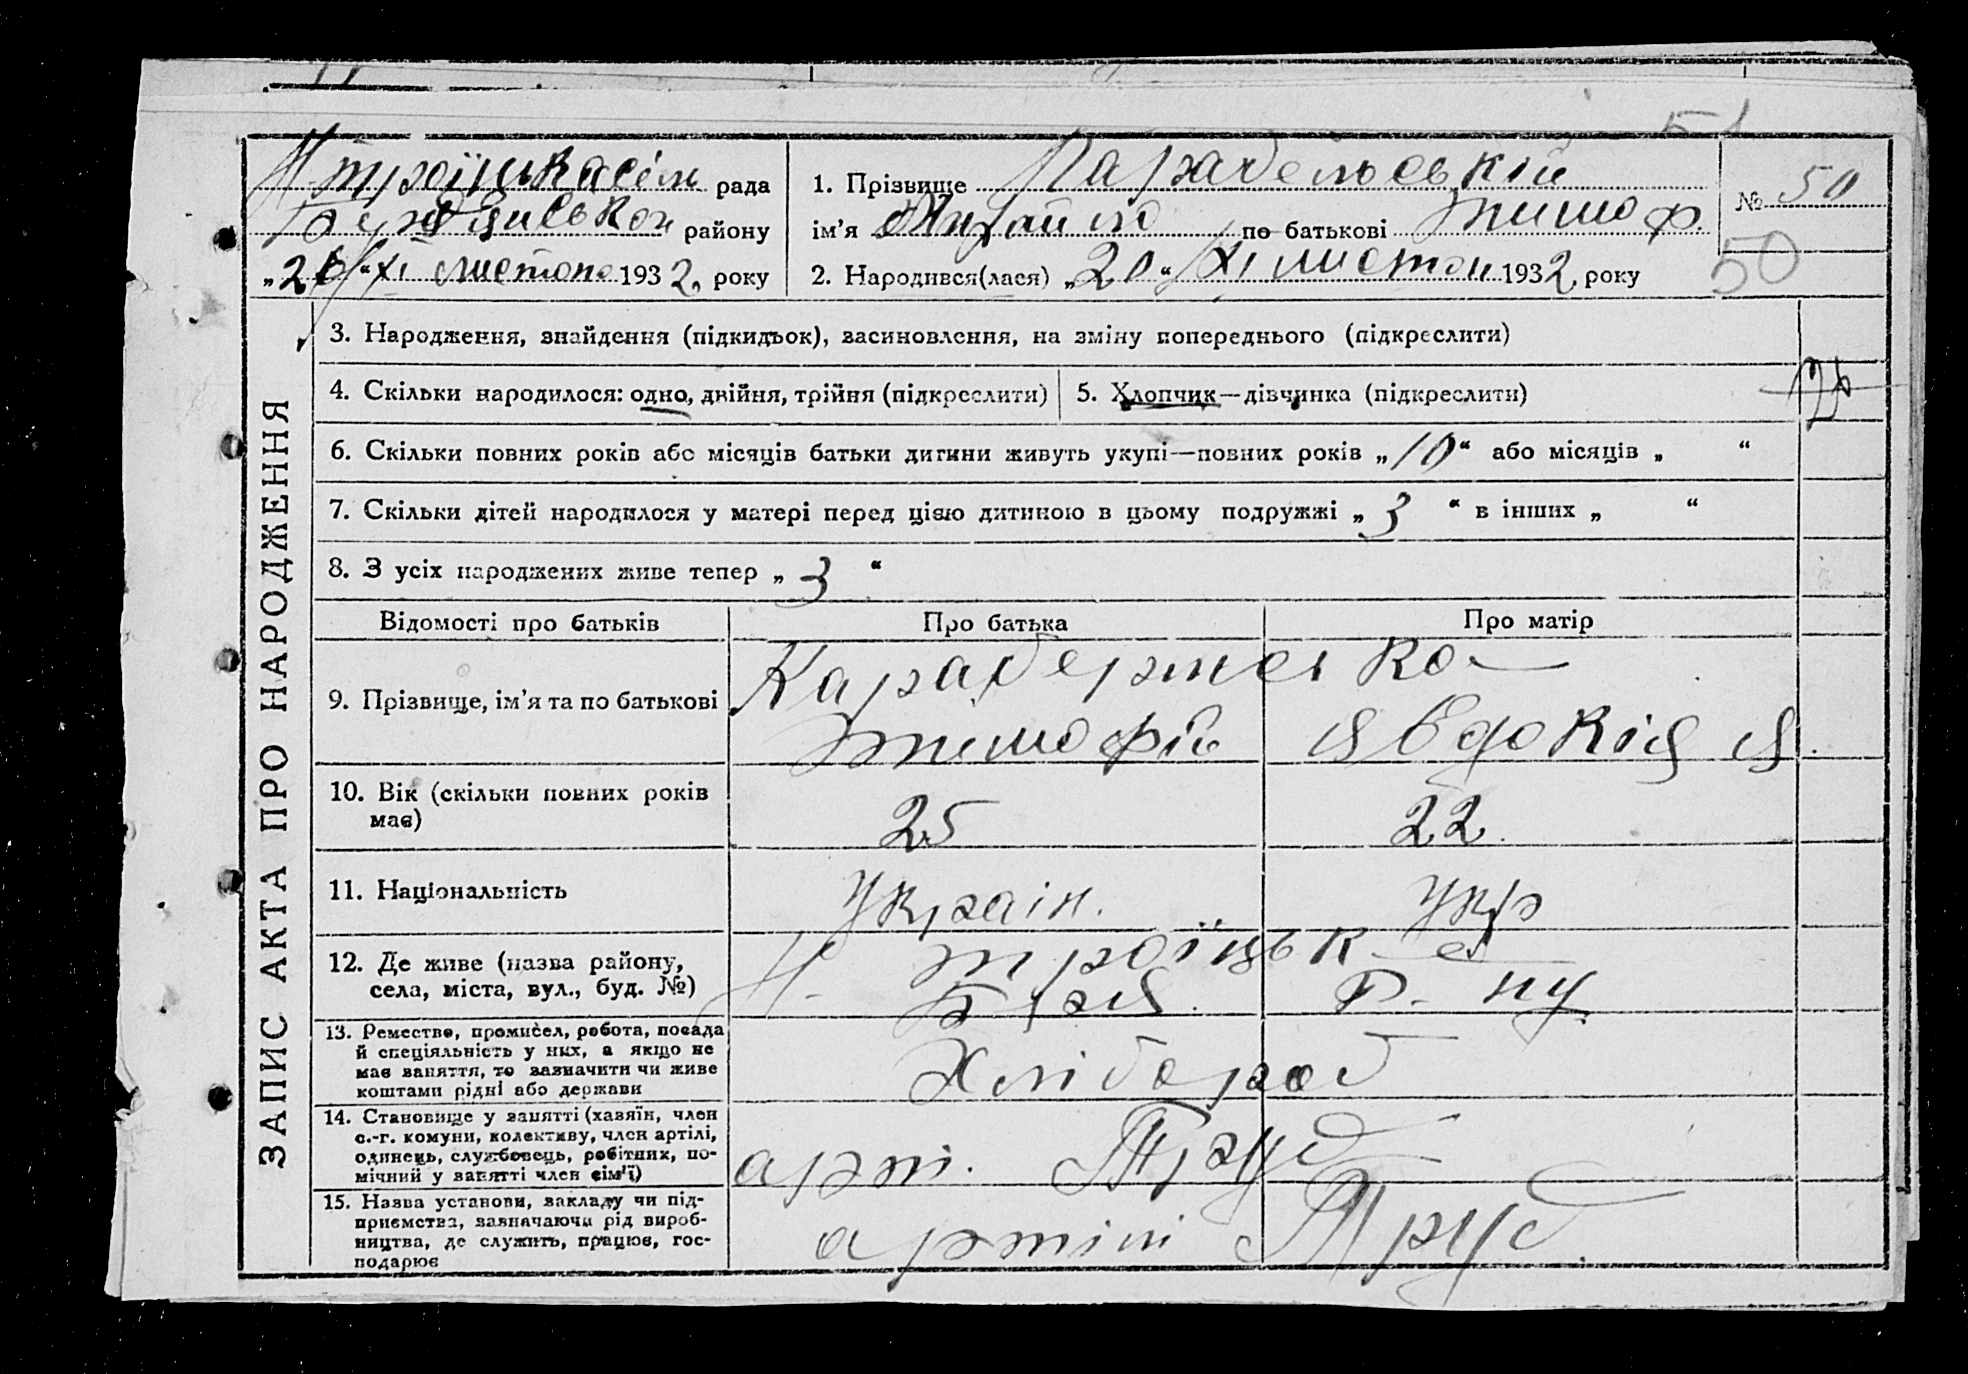 Н троїцька сіль рада
району
„26“ XI листопа 1932 року
1. Прізвище
ім’я Михайло по батькові тимоф.
2. Народився(лася) „20“ XI листоп 1932 року
№ 50
50
ЗАПИС АКТА ПРО НАРОДЖЕННЯ
3. Народження, знайдення (підкидьок), засиновлення, на зміну попереднього (підкреслити)
4. Скільки народилося: одно, двійня, трійня (підкреслити)
5. Хлопчик—дівчинка (підкреслити)
6. Скільки повних років або місяців батьки дитини живуть укупі—повних років „10“ або місяців „ “
7. Скільки дітей народилося у матері перед цією дитиною в цьому подружжі „3“ в інших „ “
8. З усіх народжених живе тепер „3“
Відомості про батьків Про батька Про матір
9. Прізвище, ім’я та по батькові
тимофій явдокія я.
10. Вік (скільки повних років має)
25 22.
11. Національність
Україн. Укр
12. Де живе (назва району, села, міста, вул., буд. №)
Н- троїцьк
Р- ну
13. Ремество, промисел, робота, посада
й спеціяльність у них, а якщо не
має заняття, то зазначити чи живе
коштами рідні або держави
Хлібороб
14. Становище у занятті (хазяїн, член
с.-г. комуни, колективу, член артілі,
одинець, службовець, робітник, по-
мічний у занятті член сім’ї)
арт. Труд
15. Назва установи, закладу чи під-
приємства, зазначаючи рід вироб-
ництва, де служить, працює, гос-
подарює
артілі Труд.